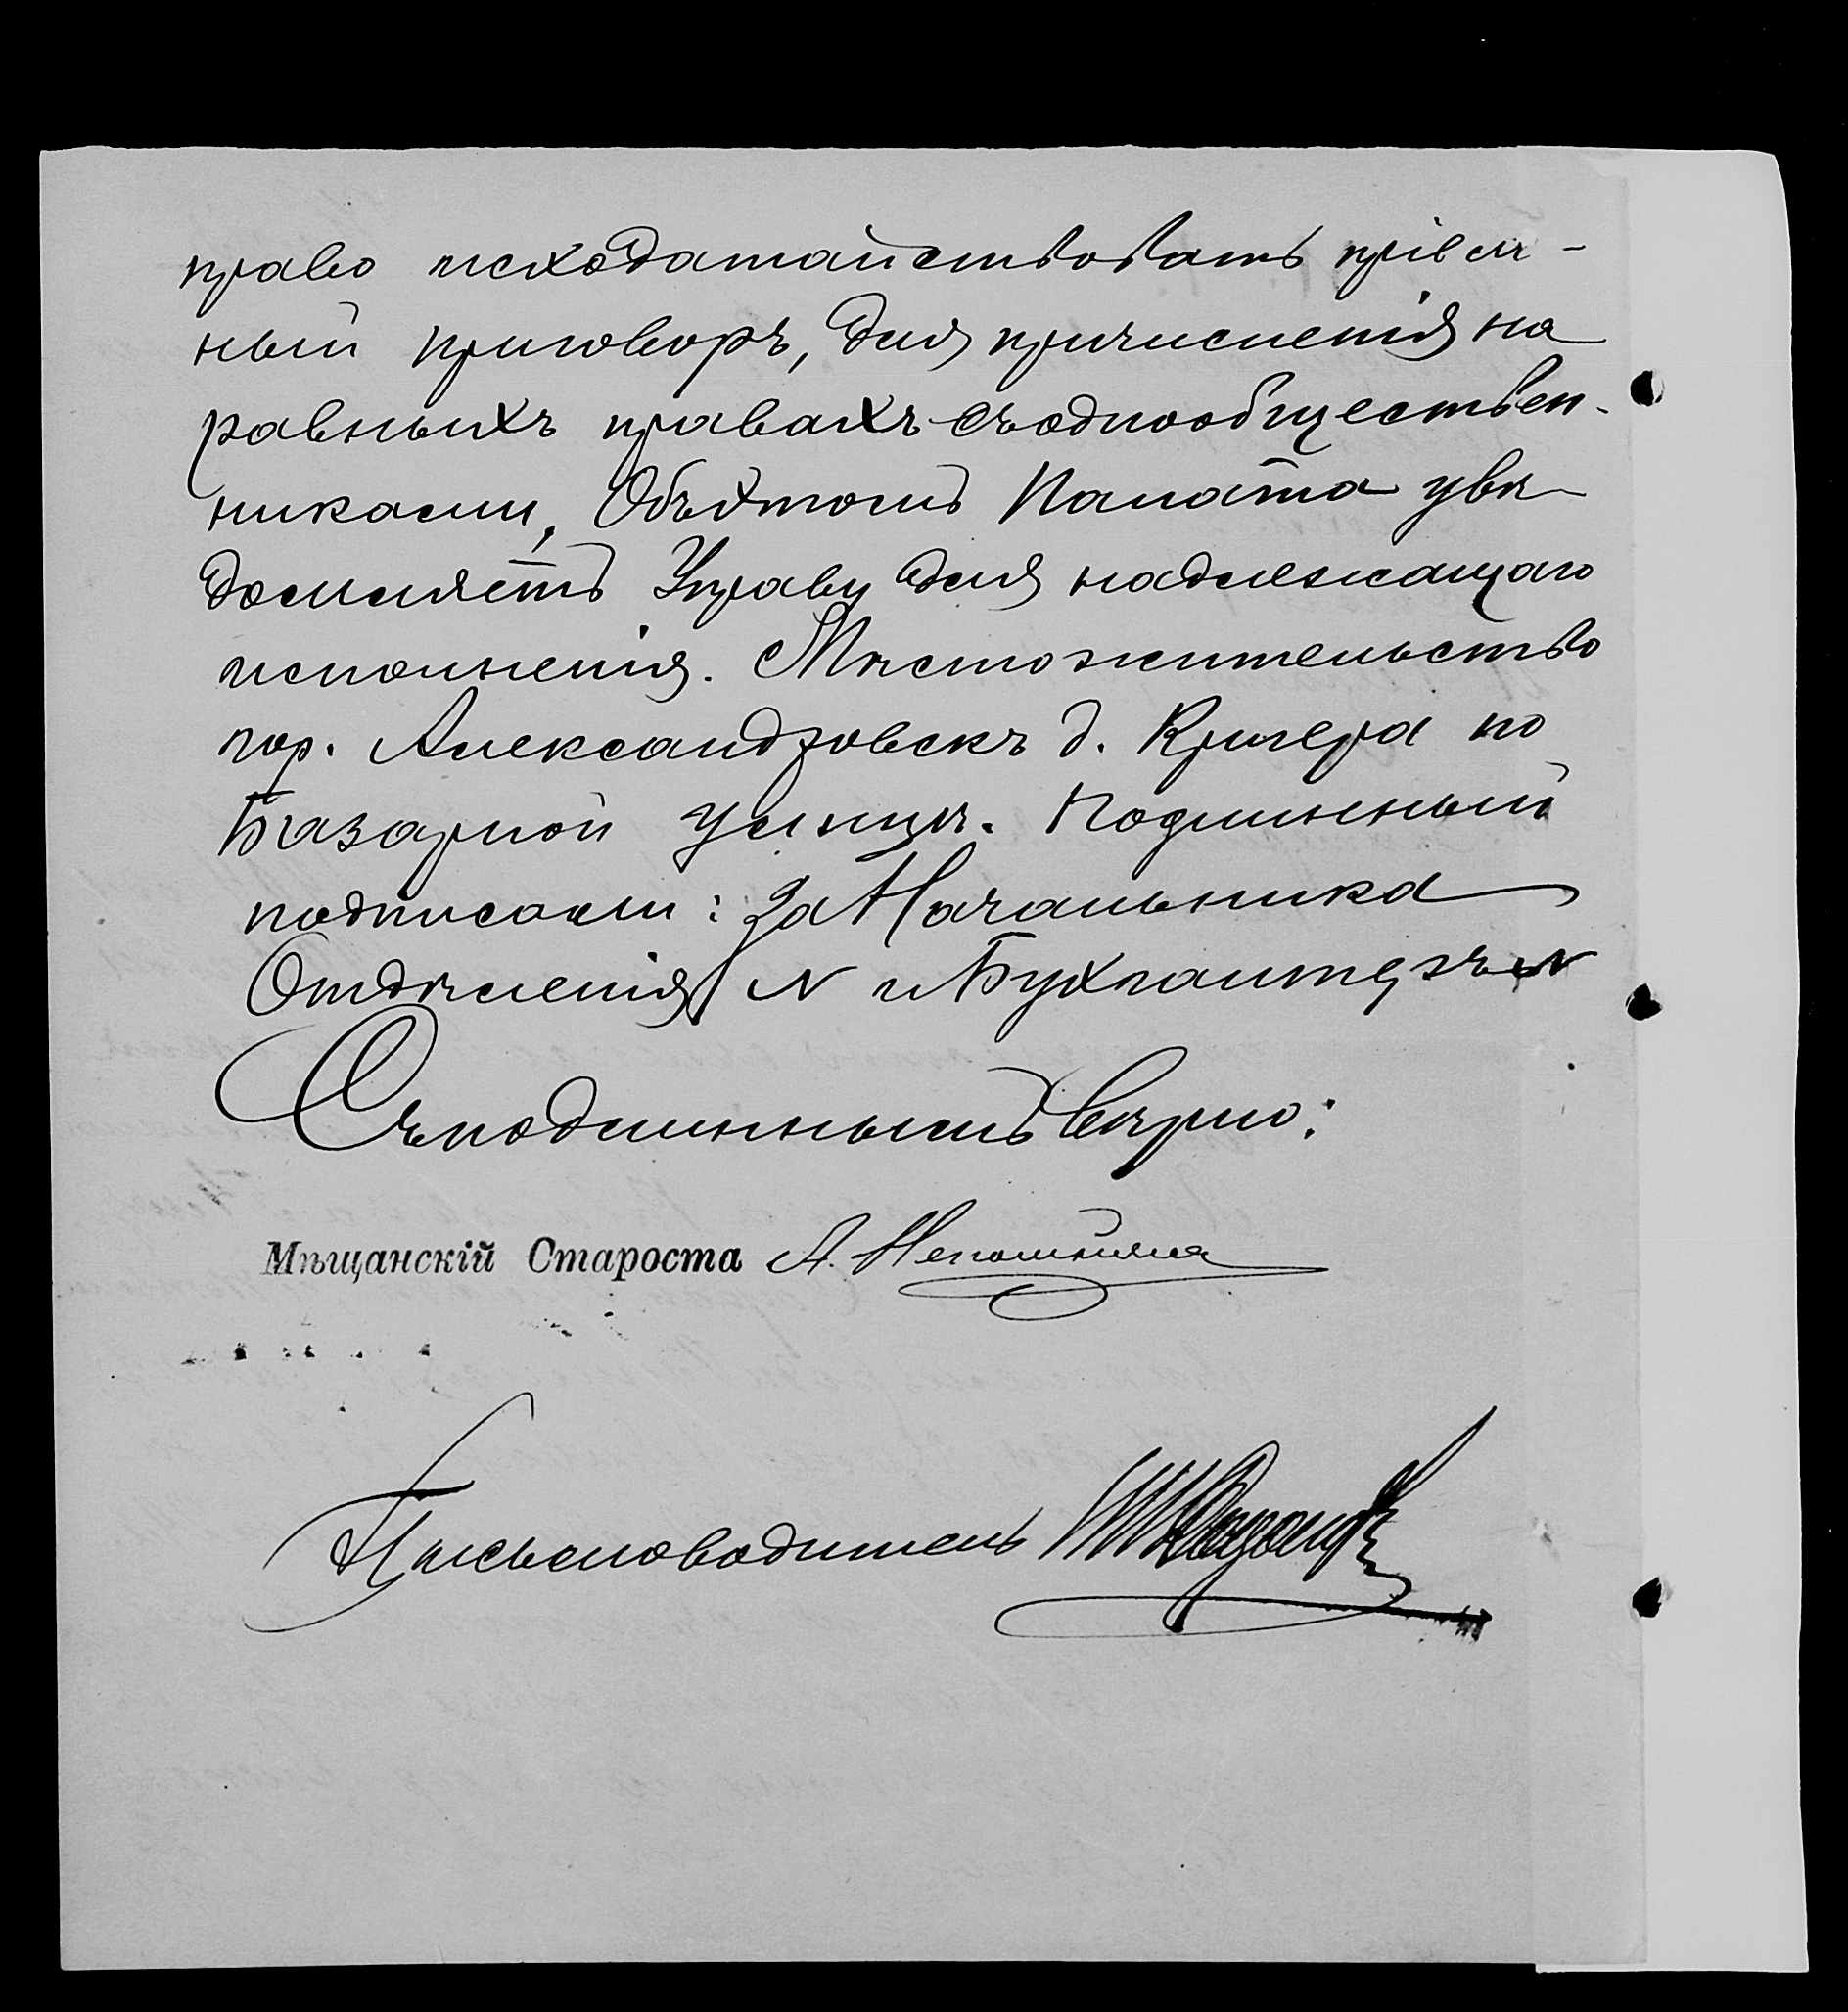 право исходатайствовать пріем-
ный приговоръ, для причисленія на
равныхъ правахъ съ однообществен-
никами, Объ этомъ Палата увѣ-
домляетъ Управу для надлежащаго
исполненія. Мѣстожительство
гор. Александровскъ д. Кригера по
Базарной улицѣ. Подлинный
подписали: За Начальника
Отдѣленія N и Бухгалтеръ N
Съ подлиннымъ вѣрно:
Мѣщанскій Староста А.
Письмоводитель